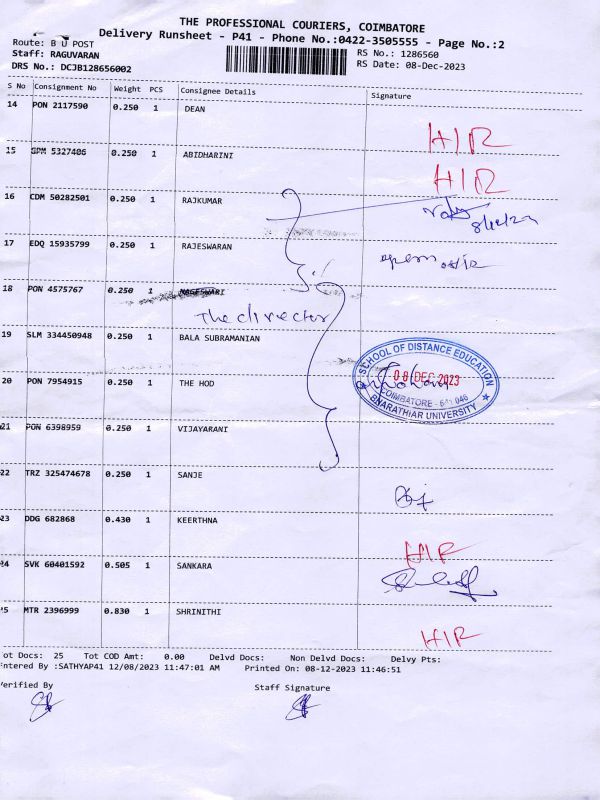 THE PROFESSIONAL COURIERS, COIMBATORE
Delivery Runsheet - P41 - Phone No.:0422-3505555 - Page No.:2
Route: B U POST
RS No.: 1286560
Staff: RAGUVARAN
RS Date: 08-Dec-2023
DRS No.: DCJB128656002
S No Consignment No Weight PCS Consignee Details Signature
14 PON 2117590 0.250 1 DEAN
HIR
15 GPM 5327406 0.250 1 ABIDHARINI
HIR
16 CDM 50282501 0.250 1 RAJKUMAR
17 EDQ 15935799 0.250 1 RAJESWARAN
18 PON 4575767 0.250 1
The director
19 SLM 334450948 0.250 1 BALA SUBRAMANIAN
SCHOOL OF DISTANCE EDUCATION
08 DEC 2023
COIMBATORE - 641 046
BHARATHIAR UNIVERSITY
20 PON 7954915 0.250 1 THE HOD
21 PON 6398959 0.250 1 VIJAYARANI
22 TRZ 325474678 0.250 1 SANJE
23 DDG 682868 0.430 1 KEERTHNA
HIR
24 SVK 60401592 0.505 1 SANKARA
25 MTR 2396999 0.830 1 SHRINITHI
HIR
ot Docs: 25 Tot COD Amt: 0.00 Delvd Docs: Non Delvd Docs: Delvy Pts:
ntered By :SATHYAP41 12/08/2023 11:47:01 AM Printed On: 08-12-2023 11:46:51
erified By Staff Signature